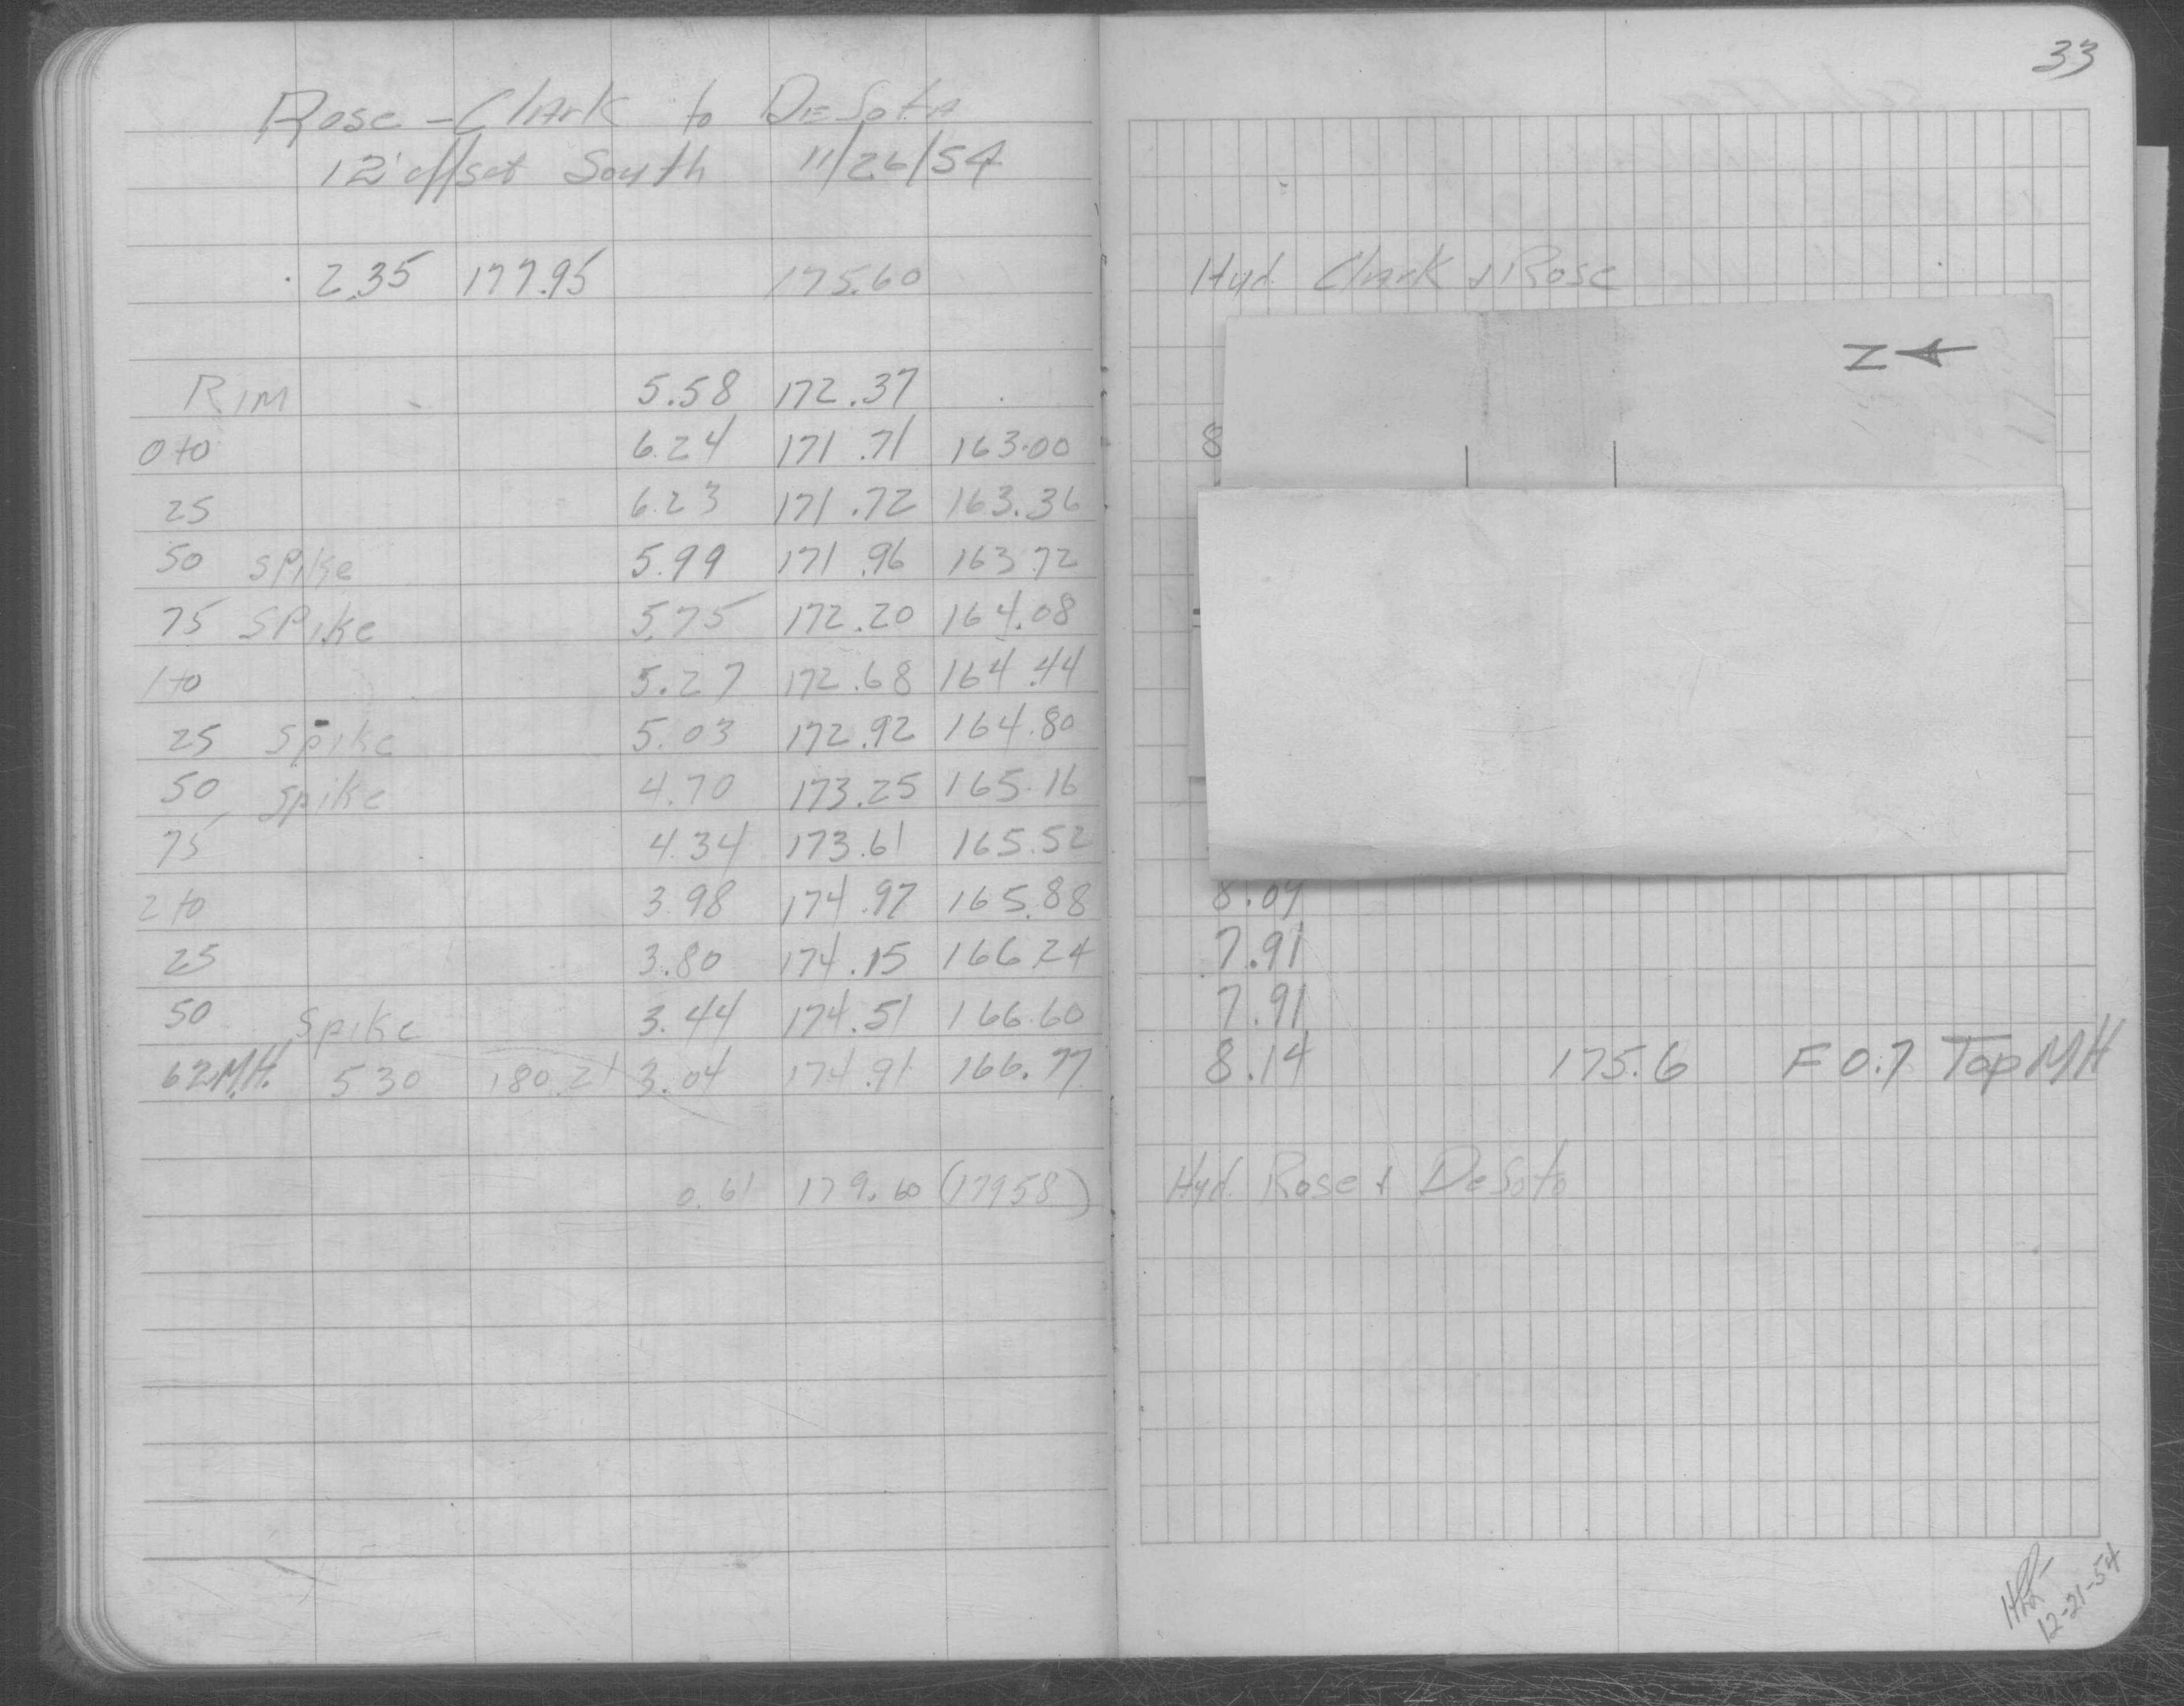 Rose - Clark to DeSota
12' offset South 11/26/54
2.35 177.95 175.60
RIM 5.58 172.37
0+0 6.24 171.71 163.00
25 6.23 171.72 163.36
50 Spike 5.99 171.96 163.72
75 Spike 5.75 172.20 164.08
1+0 5.27 172.68 164.44
25 Spike 5.03 172.92 164.80
50 Spike 4.70 173.25 165.16
75 4.34 173.61 165.52
2+0 3.98 174.97 165.88
25 3.80 174.15 166.24
50 Spike 3.44 174.51 166.60
62 M.H. 5 30 180.21 3.04 174.91 166.77
0.61 179.60 (179 58)
33
Hyd. Clark & Rose
N
8
7.91
7.91
8.14 175.6 F 0.7 Top MH
Hyd. Rose & DeSoto
12-21-54